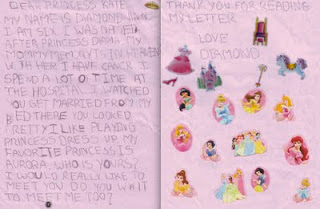 DEAR PRINCESS KATE
MY NAME IS DIAMOND AND
I AM SIX I WAS NAMED
AFTER PRINCESS DIANA MY
MOMMY MEM
WITH HER I HAVE CANCR I
SPEND A LOT OF TIME AT
THE HOSPITAL I WATCHED
YOU GET MARRIED FROM MY
BED THERE YOU LOOKED
PRETTY I LIKE PLAYING
PRINCESS DRESS UP MY
FAVORITE PRINCESS IS
AURORA WHO IS YOURS?
I WOULD REALLY LIKE TO
MEET YOU DO YOU WANT
TO MEET ME TOO?
THANK YOU FOR READING
MY LETTER
LOVE
DIAMOND